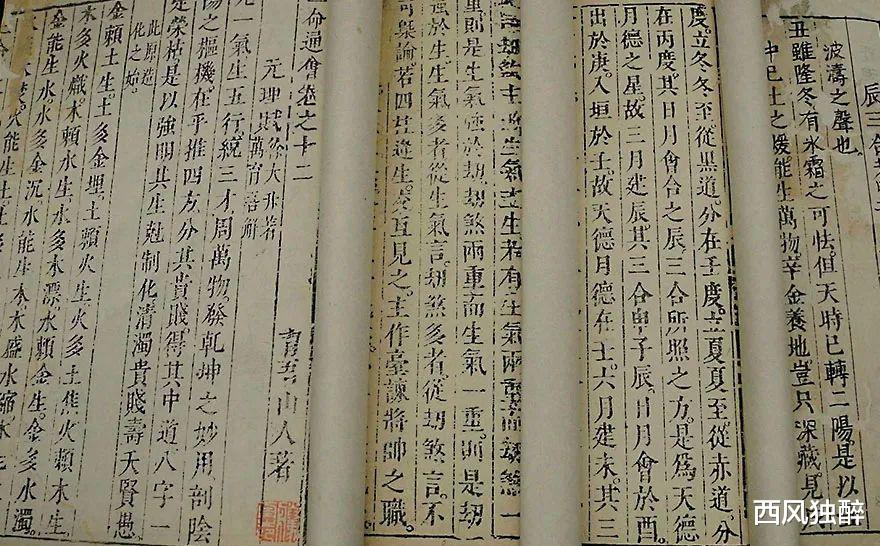 辰三合
波濤之聲也。
丑雖隆冬有氷霜之可怯。但天時已轉二陽是以
中巳土之暖能生萬物。辛金養地。豈只深藏。見
度。立冬冬至從黒道。分在壬度。立夏夏至從赤道。分
在丙度。其日月會合之辰三合所照之方。是為天德
月德之星。故三月建辰。其三合申子辰。日月會於酉
出於庚。入垣於壬。故天德月德在壬。六月建未。其三
劫煞主生氣主生若有生氣兩重而劫煞一
重則是生氣強於劫。劫煞兩重而生氣一重。則是劫
強於生。生氣多者從生氣言。劫煞多者從劫煞言。不
可槩論。若四柱逢生。處互見之。主作臺諫將帥之職。
命通會卷之十二
育吾山人著
元理賦徐大升著
萬育吾解
元一氣生五行。統三才周萬物。發乾坤之妙用。剖陰
陽之樞機。在乎推四方。分其貴賤。得其中道。八字一
定榮枯。是以強明其生尅制化清濁貴賤壽夭賢愚。
此原造
化之始。
金賴土生。土多金埋。土賴火生。火多土焦。火賴木生。
木多火熾。木賴水生。水多木漂。水賴金生。金多水濁。
金能生水。水多金沉。水能生木。木盛水縮。木
火能生土。土
西风独醉